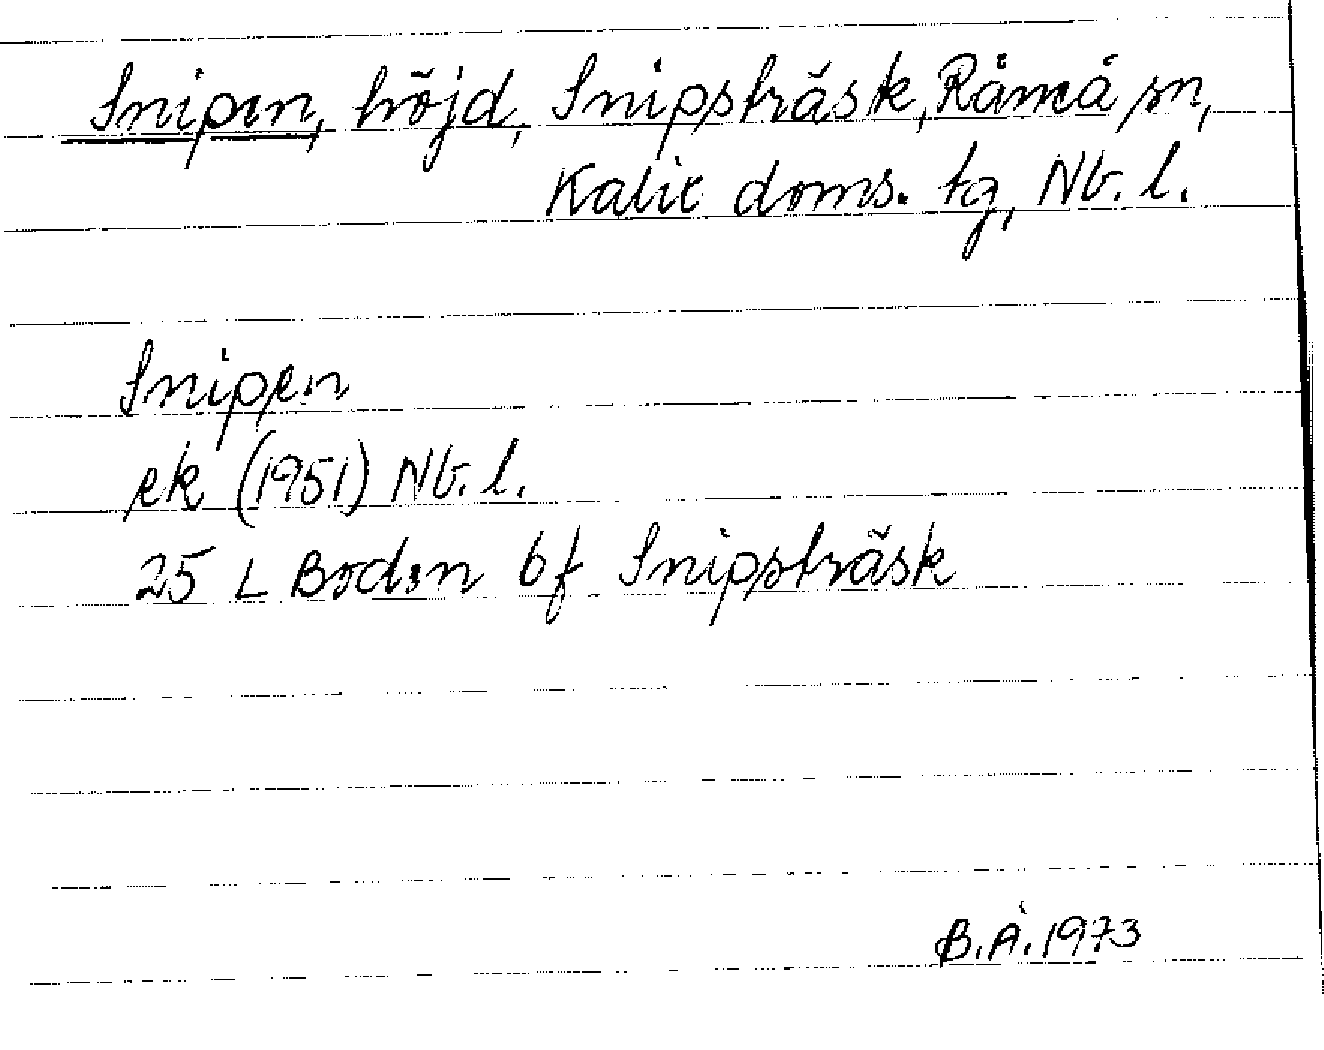 Snipen, höjd, Snipsträsk, Råneå sn,
Kalix doms. tg, Nb. l.
Snipen
ek (1951) Nb. l.
25 L Boden bf Snipsträsk
B.Å. 1973